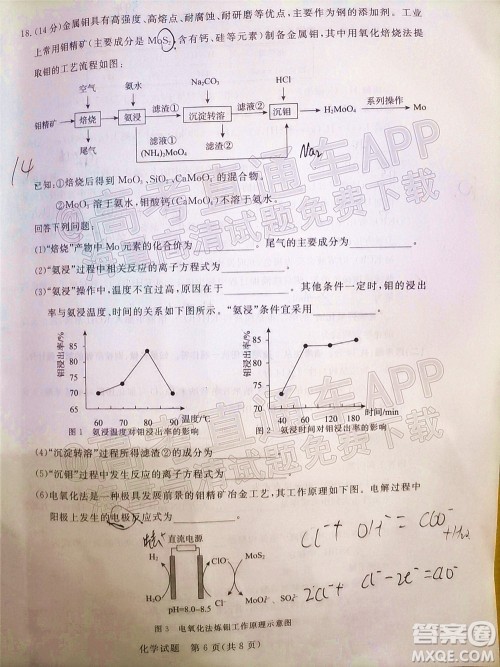 18.(14分)金属钼具有高强度、高熔点、耐腐蚀、耐研磨等优点,主要作为钢的添加剂。工业
上常用钼精矿(主要成分是 MoS₂,含有钙、硅等元素)制备金属钼,其中用氧化焙烧法提
取钼的工艺流程如图:
空气 氨水 Na₂CO₃ HCl
钼精矿 焙烧 氨浸 滤渣① 沉淀转溶 滤液② 沉钼 H₂MoO₄ 系列操作 Mo
尾气 滤液① (NH₄)₂MoO₄ 滤渣②
14
已知:①焙烧后得到 MoO₃、SiO₂、CaMoO₄ 的混合物。
②MoO₃ 溶于氨水,钼酸钙(CaMoO₄)不溶于氨水。
回答下列问题:
(1)“焙烧”产物中 Mo 元素的化合价为 。尾气的主要成分为 。
(2)“氨浸”过程中相关反应的离子方程式为 。
(3)“氨浸”操作中,温度不宜过高,原因在于 。其他条件一定时,钼的浸出
率与氨浸温度、时间的关系如下图所示。“氨浸”条件宜采用 。
钼浸出率/%
90
85
80
75
70
65
60 70 80 90 温度/℃
图 1 氨浸温度对钼浸出率的影响
钼浸出率/%
90
85
80
75
70
40 60 120 180 时间/min
图 2 氨浸时间对钼浸出率的影响
(4)“沉淀转溶”过程所得滤渣②的成分为 。
(5)“沉钼”过程中发生反应的离子方程式为 。
(6)电氧化法是一种极具发展前景的钼精矿冶金工艺,其工作原理如下图。电解过程中
阳极上发生的电极反应式为 。
直流电源
H₂ ClO⁻ MoS₂
H₂O Cl⁻ MoO₄²⁻、SO₄²⁻
pH=8.0~8.5
图 3 电氧化法炼钼工作原理示意图
化学试题 第 6 页(共 8 页)
@高考直通车APP
海量高清试题免费下载
高考直通车APP
海量高清试题免费下载
答案圈
MXQE.COM